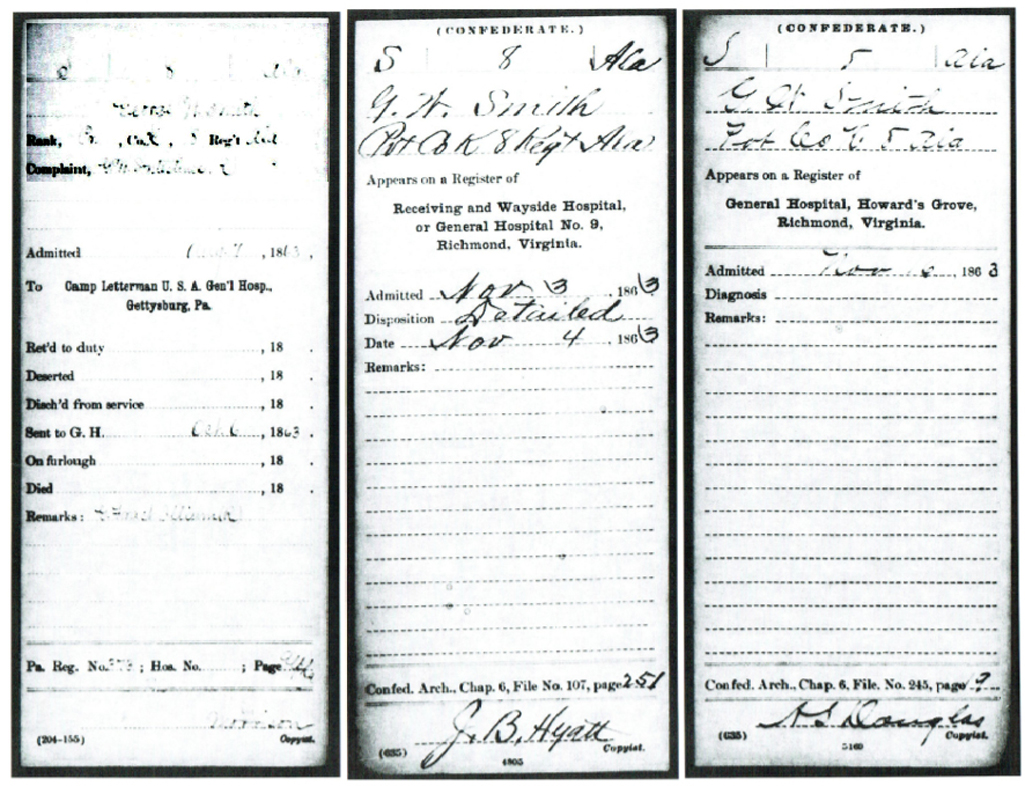 S 8 Ala
George W Smith
Rank, , Co. K, 8 Reg't Ala
Complaint,
Admitted Aug 7, 1863,
To Camp Letterman U. S. A. Gen'l Hosp.,
Gettysburg, Pa.
Ret'd to duty , 18 .
Deserted , 18 .
Disch'd from service , 18 .
Sent to G. H. Oct 6, 1863.
On furlough , 18 .
Died , 18 .
Remarks:
Pa. Reg. No. 373; Hos. No. ; Page
Morrison
(204-155) Copyist.
(CONFEDERATE.)
S 8 Ala
G. W. Smith
Pvt Co K 8 Regt Ala
Appears on a Register of
Receiving and Wayside Hospital,
or General Hospital No. 9,
Richmond, Virginia.
Admitted Nov 3, 1863
Disposition Detailed
Date Nov 4, 1863
Remarks:
Confed. Arch., Chap. 6, File No. 107, page 251
J. B. Hyatt
(635) Copyist.
4805
(CONFEDERATE.)
S 5 Ala
G. W. Smith
Pvt Co K 5 Ala
Appears on a Register of
General Hospital, Howard's Grove,
Richmond, Virginia.
Admitted Nov , 1863
Diagnosis
Remarks:
Confed. Arch., Chap. 6, File. No. 245, page
Douglas
(635) Copyist.
5160